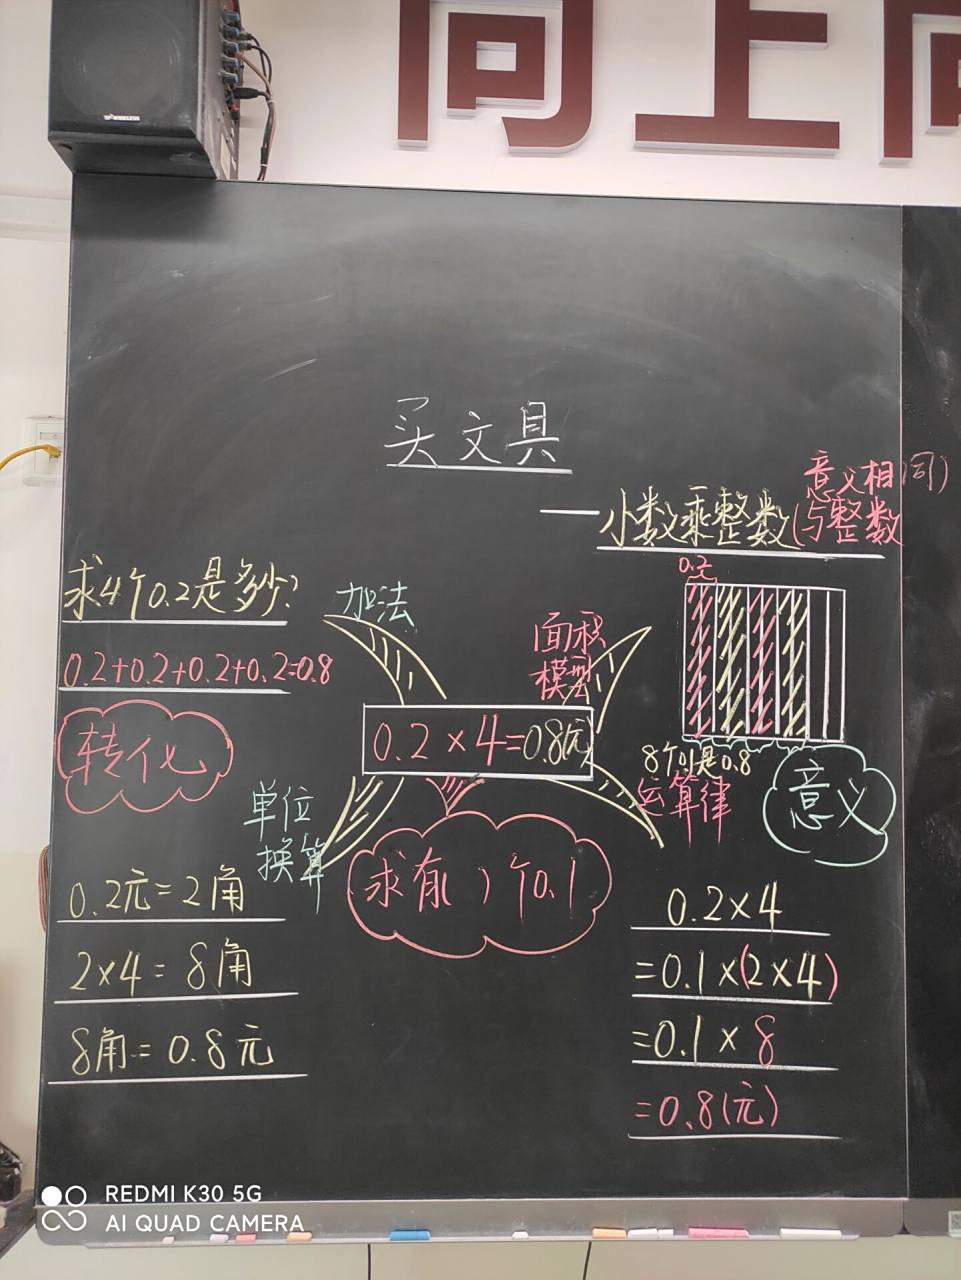 向上向
买文具
—小数乘整数(与整数
意义相同)
求4个0.2是多少?
0.2+0.2+0.2+0.2=0.8
转化
加法
面积
模型
0.2元
0.2×4=0.8(元)
8个0.1是0.8
意义
单位
换算
运算律
求有( )个0.1
0.2元=2角
2×4=8角
8角=0.8元
0.2×4
=0.1×(2×4)
=0.1×8
=0.8(元)
REDMI K30 5G
AI QUAD CAMERA